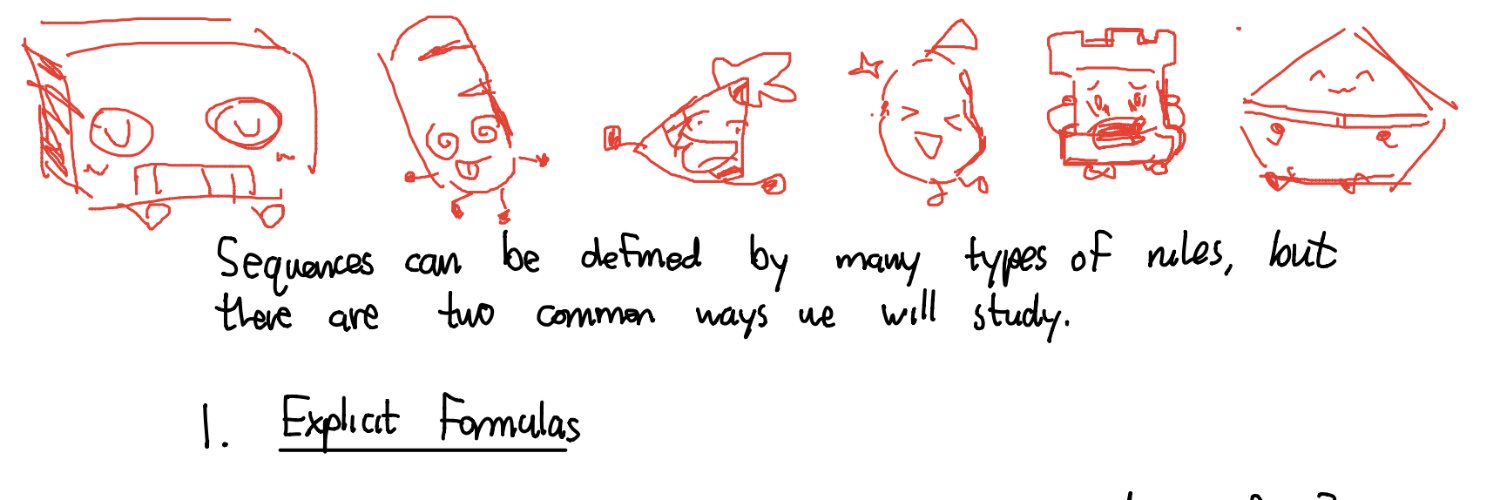 Sequences can be defined by many types of rules, but
there are two common ways we will study.
1. Explicit Formulas